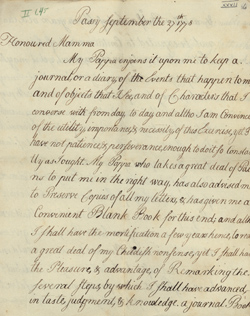 Passy September the 27th 1778
Honoured Mamma
My Pappa enjoins it upon me to keep a
journal or a diary, of the Events that happen to m
and of objects that I See, and of Characters that I
converse with from day, to day and altho I am Convinced
of the utility, importance, & necessity, of this Exercise, yet I
have not patience, & perseverance, enough to do it so Constan
ly as I ought. My Pappa who takes a great deal of Pain
ns to put me in the right way, has also advised me
to Preserve Copies of all my letters, & has given me a
Convenient Blank Book for this end; and altho
I shall have the mortification a few years hence, to re
a great deal of my Childish nonsense, yet I shall have
the Pleasure, & advantage, of Remarking the
several steps, by which I shall have advanced,
in taste, judgment, & knowledge. a journal Book